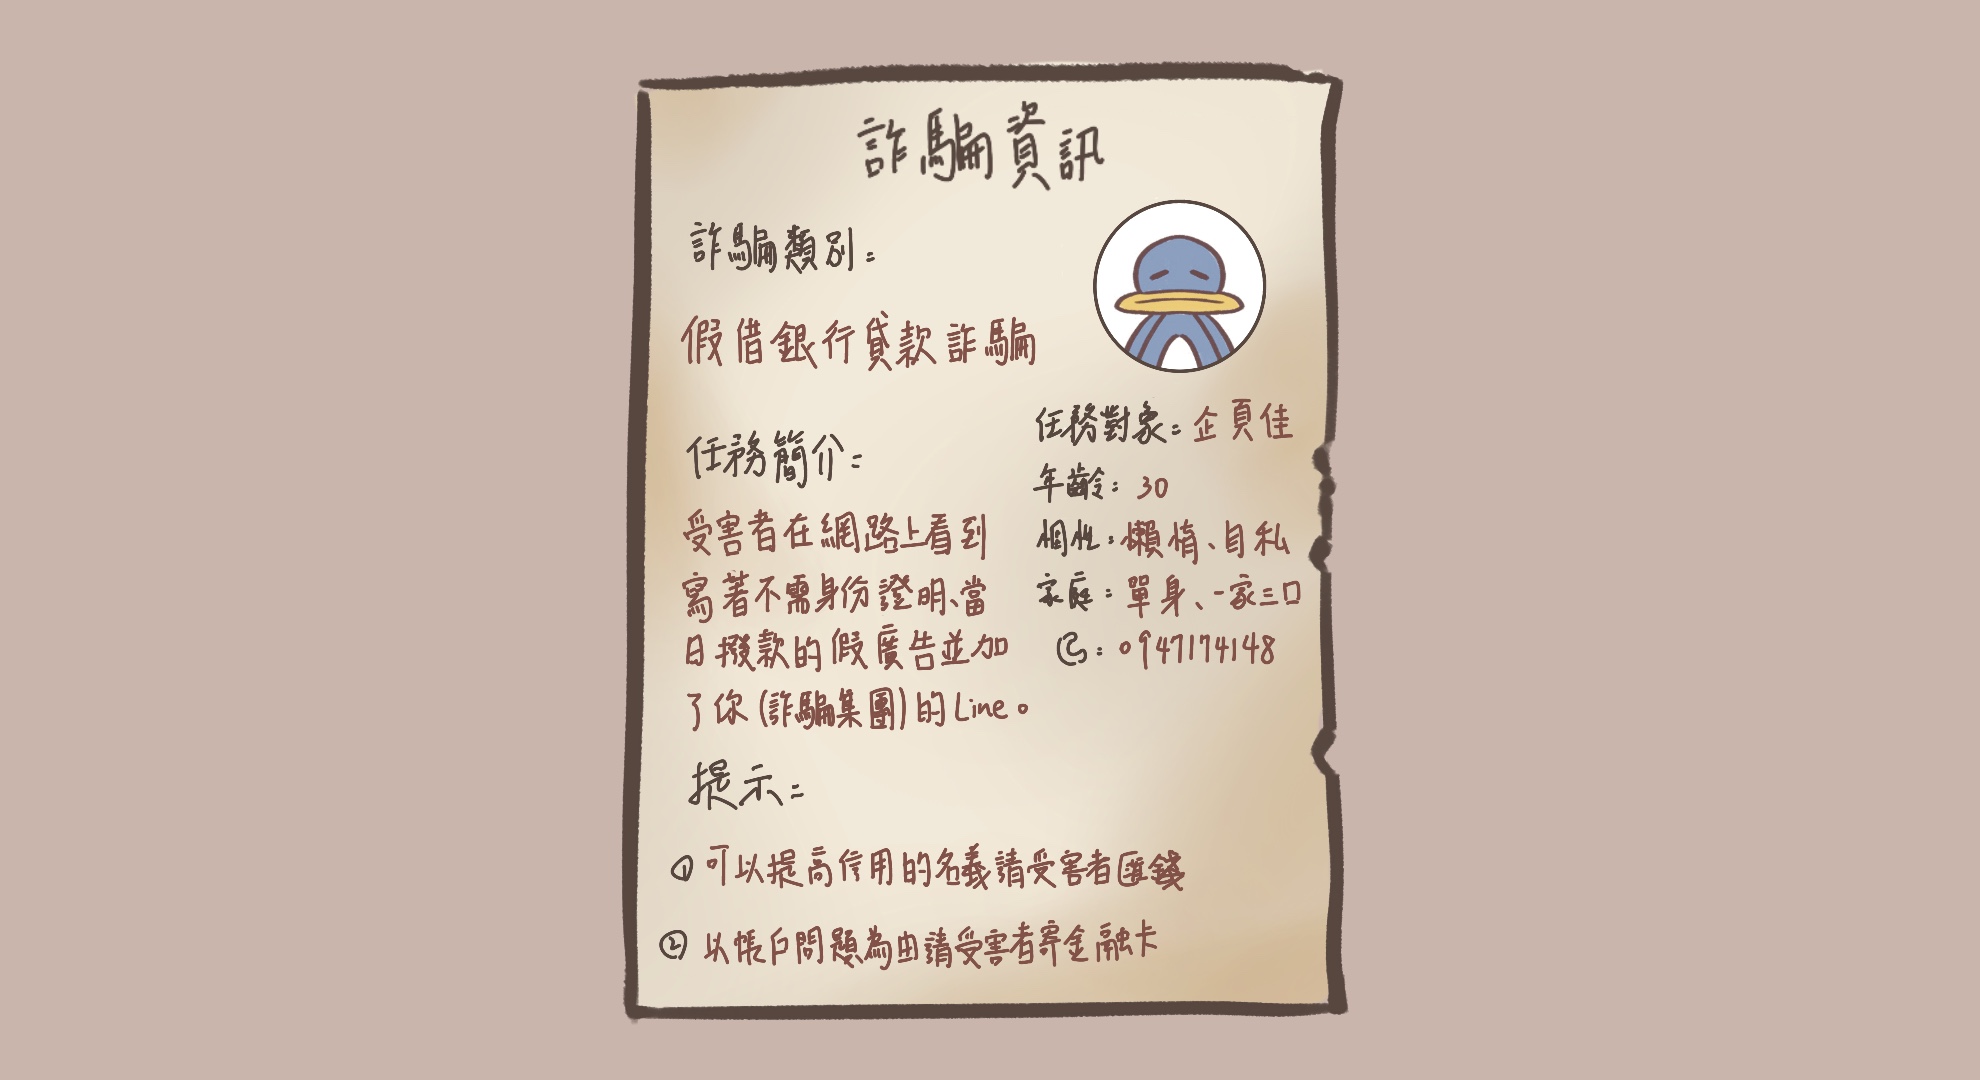 詐騙資訊
詐騙類別：
假借銀行貸款詐騙
任務簡介：
受害者在網路上看到
寫著不需身份證明、當
日撥款的假廣告並加
了你(詐騙集團)的Line。
任務對象：企頁佳
年齡：30
個性：懶惰、自私
家庭：單身、一家三口
：0947174148
提示：
① 可以提高信用的名義請受害者匯錢
② 以帳戶問題為由請受害者寄金融卡